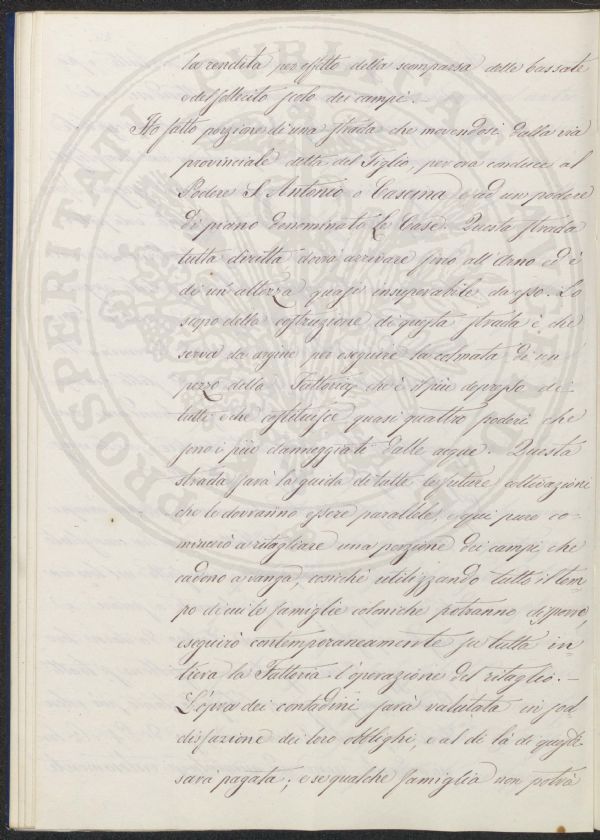 la rendita per effetto della scomparsa delle bassate
e del sollecito scolo dei campi. —
Ho fatto porzione di una strada che movendosi dalla via
provinciale detta del Tiglio, per ora conduce al
Podere S. Antonio o Cascina e ad un podere
di piano denominato Le Case. Questa strada
tutta diritta dovrà arrivare sino all'Arno ed è
di un'altezza quasi insuperabile da esso. Lo
scopo della costruzione di questa strada è, che
serva da argine per eseguire la colmata di un
pezzo della Fattoria, che è il più depresso di
tutti e che costituisce quasi quattro poderi che
sono i più danneggiati dalle acque. Questa
strada sarà la guida di tutte le future coltivazioni
che le dovranno essere parallele, e qui pure co-
mincerò a ritagliare una porzione dei campi, che
cadono a vanga, cosichè utilizzando tutto il tem-
po di cui le famiglie coloniche potranno disporre,
eseguirò contemporaneamente su tutta in-
tiera la Fattoria l'operazione del ritaglio. —
L'opra dei contadini sarà valutata in sod-
disfazione dei loro obblighi, e al di là di questi
sarà pagata; e se qualche famiglia non potrà
PROSPERITATI PUBLICAE